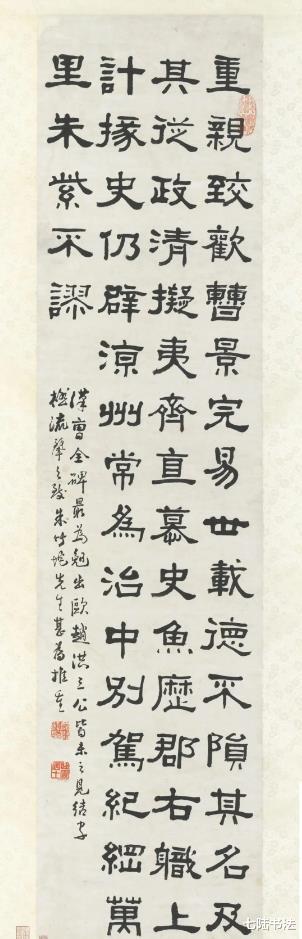 重親致歡曹景完易世載德不隕其名及
其從政清擬夷齊直慕史魚歷郡右職上
計掾史仍辟涼州常為治中別駕紀綱萬
里朱紫不謬
漢曹全碑最為晚出歐趙洪三公皆未之見結字
極流麗之致朱竹垞先生甚為推重
七陆书法